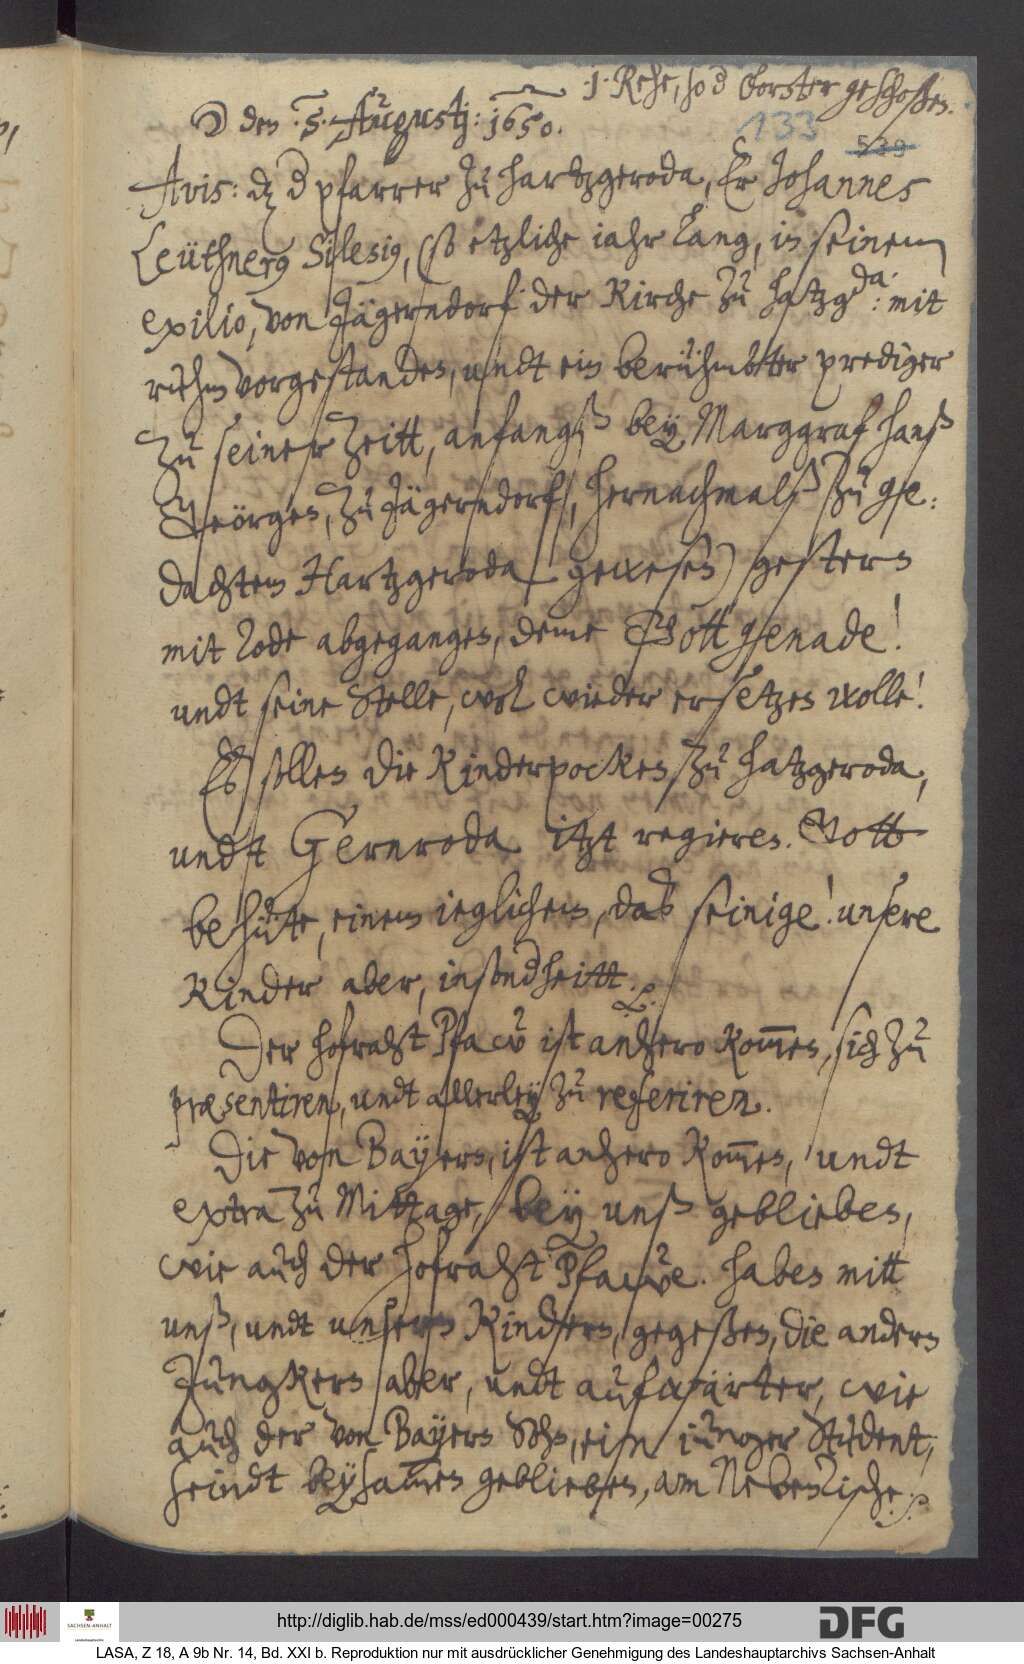 ·1· Rehe, so d Forster geschoßen.
☽ den ·5· Augustj: 1650.
133
539
Avis: dz d pfarrer zu hartzgeroda, Er Johannes
Leüthnerg Silesig, (so etzliche iahr lang, in seinem
exilio, von Jägerndorf der Kirche zu hatzgda: mit
ruhm vorgestanden, undt ein berühmbtter prediger
zu seiner Zeitt, anfangß bey Marggraf hanß
Geörgen, zu Jägerndorf, hernachmalß zu ge:
dachtem Hartzgeroda gewesen) gestern
mit Tode abgegangen, deme Gott genade!
undt seine Stelle, wol wieder ersetzen wolle!
Es sollen die Kinderpocken zu hatzgeroda,
undt Gernroda itzt regieren. Gott
behüte, einem ieglichem, das seinige! unsere
Kinder aber, insond heitt. ꝛc.
Der hofraht Pfaw ist anhero kom̄en, sich zu
præsentiren, undt allerley zu referiren.
Die von Bayern, ist anhero kom̄en, undt
extra zu Mittage, bey unß geblieben,
wie auch der hofraht Pfawe. haben mitt
unß, undt unsern Kindern, gegeßen, die andern
Jungkern aber, undt aufwärter, wie
auch der von Bayern Sohn, ein iunger Student,
seindt beysam̄en geblieben, am NebenTische.
http://diglib.hab.de/mss/ed000439/start.htm?image=00275
SACHSEN-ANHALT
DFG
LASA, Z 18, A 9b Nr. 14, Bd. XXI b. Reproduktion nur mit ausdrücklicher Genehmigung des Landeshauptarchivs Sachsen-Anhalt